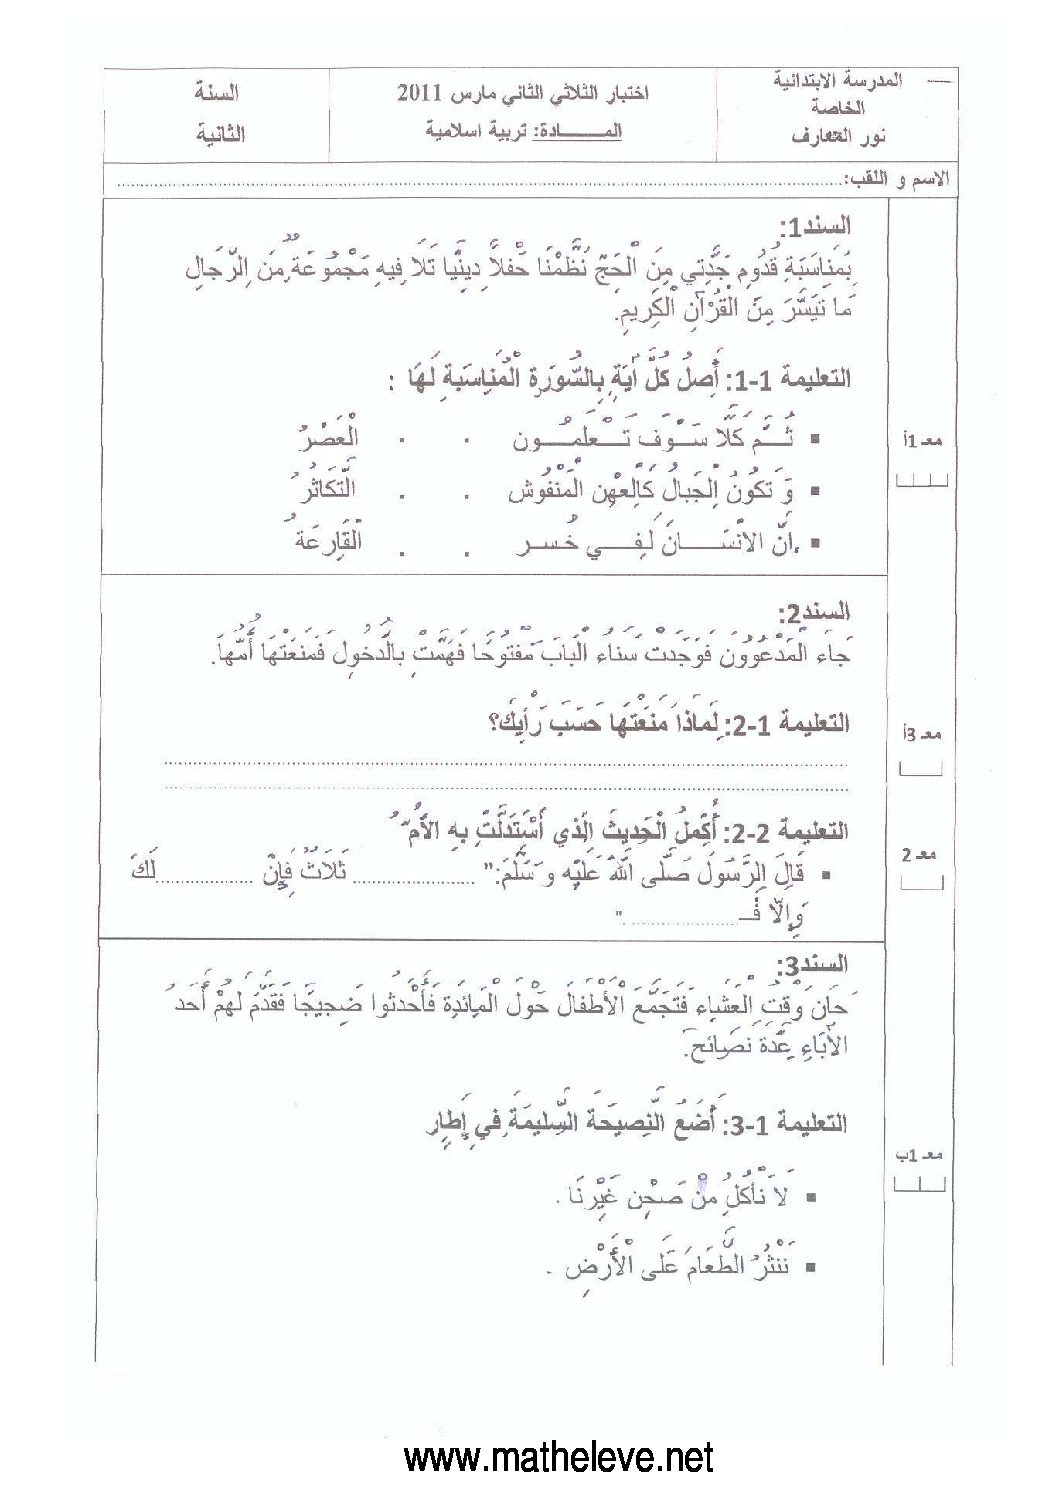 المدرسة الابتدائية
الخاصة
نور المعارف
اختبار الثلاثي الثاني مارس 2011
المـــــادة: تربية اسلامية
السنة
الثانية
الاسم و اللقب:
السند1:
بِمُنَاسَبَةِ قُدُومِ جَدَّتِي مِنَ الْحَجِّ نَظَّمْنَا حَفْلاً دِينِيًّا تَلَا فِيهِ مَجْمُوعَةٌ مِنَ الرِّجَالِ
مَا تَيَسَّرَ مِنَ الْقُرْآنِ الْكَرِيمِ.
التعليمة 1-1: أَصِلُ كُلَّ آيَةٍ بِالسُّورَةِ الْمُنَاسَبَةِ لَهَا :
▪ ثُـمَّ كَلَّا سَـوْفَ تَـعْلَمُـونَ . . الْعَصْرُ
▪ وَ تَكُونُ الْجِبَالُ كَالْعِهْنِ الْمَنْفُوشِ . . التَّكَاثُرُ
▪ إِنَّ الْأِنْسَـــانَ لَفِـــي خُسـر . . الْقَارِعَةُ
معـ 1أ
السند2:
جَاءَ الْمَدْعُوُونَ فَوَجَدَتْ سَنَاءُ الْبَابَ مَفْتُوحًا فَهَمَّتْ بِالدُّخُولِ فَمَنَعَتْهَا أُمُّهَا.
التعليمة 1-2: لِمَاذَا مَنَعَتْهَا حَسَبَ رَأْيِكَ؟
معـ 3أ
التعليمة 2-2: أُكْمِلُ الْحَدِيثَ الَّذِي اسْتَدَلَّتْ بِهِ الأُمُّ
▪ قَالَ الرَّسُولُ صَلَّى اللَّهُ عَلَيْهِ وَ سَلَّمَ:" .................... ثَلَاثٌ فَإِنْ .................. لَكَ
وَإِلَّا فَــ.................... ."
معـ 2
السند3:
حَانَ وَقْتُ الْعَشَاءِ فَتَجَمَّعَ الْأَطْفَالُ حَوْلَ الْمَائِدَةِ فَأَحْدَثُوا ضَجِيجًا فَقَدَّمَ لَهُمْ أَحَدُ
الْأَبَاءِ عِدَّةَ نَصَائِحَ.
التعليمة 1-3: أَضَعُ النَّصِيحَةَ السَّلِيمَةَ فِي إِطَارٍ
▪ لَا نَأْكُلُ مِنْ صَحْنِ غَيْرِنَا .
▪ نَنْثُرُ الطَّعَامَ عَلَى الْأَرْضِ .
معـ 1ب
www.matheleve.net